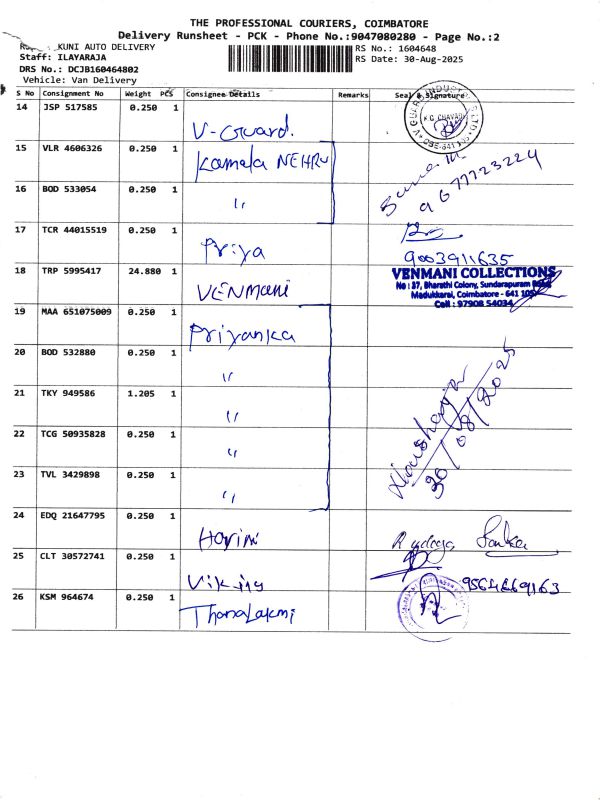 THE PROFESSIONAL COURIERS, COIMBATORE
Delivery Runsheet - PCK - Phone No.:9047080280 - Page No.:2
KUNI AUTO DELIVERY
RS No.: 1604648
Staff: ILAYARAJA
RS Date: 30-Aug-2025
DRS No.: DCJB160464802
Vehicle: Van Delivery
S No Consignment No Weight PCS Consignee Details Remarks Seal & Signature
14 JSP 517585 0.250 1 V-Guard.
15 VLR 4606326 0.250 1 Kamala NEHRU
16 BOD 533054 0.250 1 "
9677723224
17 TCR 44015519 0.250 1 Priya
9003911635
18 TRP 5995417 24.880 1 VENMANI
VENMANI COLLECTIONS
No : 37, Bharathi Colony, Sundarapuram
Madukkarai, Coimbatore - 641
Cell : 97908 54034
19 MAA 651075009 0.250 1 Priyanka
20 BOD 532880 0.250 1 "
21 TKY 949586 1.205 1 "
22 TCG 50935828 0.250 1 "
23 TVL 3429898 0.250 1 "
30/08/2025
24 EDQ 21647795 0.250 1 Harini
25 CLT 30572741 0.250 1 Viking
9564669163
26 KSM 964674 0.250 1 ThanaLakmi